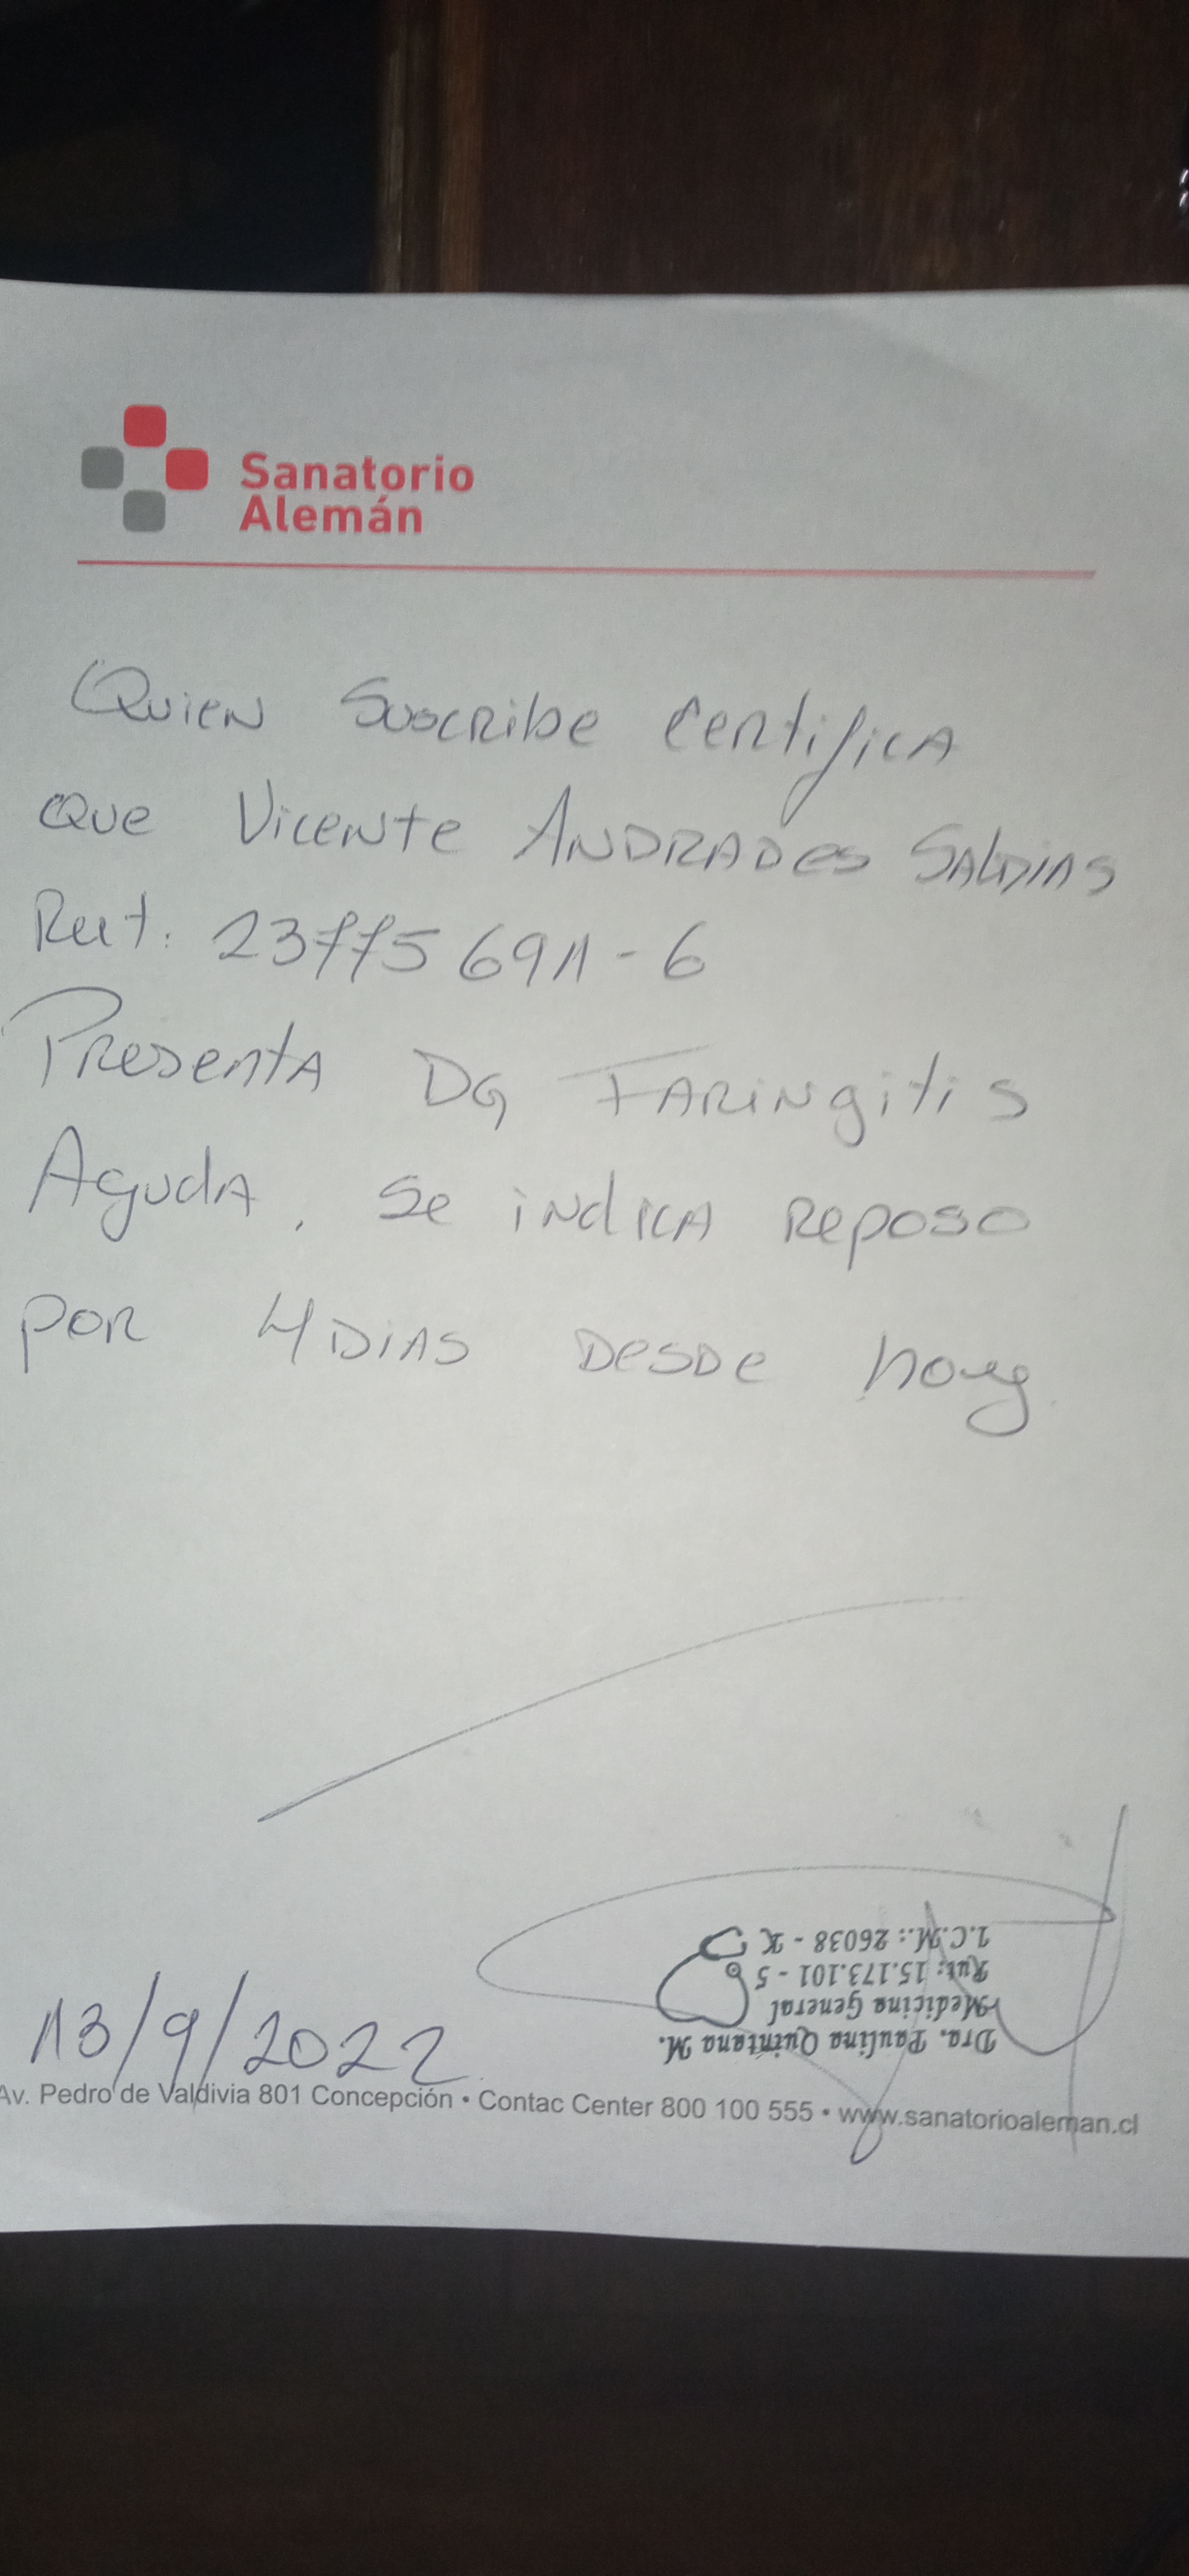 Sanatorio
Alemán
Quien Suscribe Certifica
que Vicente Andrades Saldias
Rut: 23775691-6
Presenta DG Faringitis
Aguda, se indica reposo
por 4 Dias desde hoy.
1.C.M.: 26038 - K
Rut: 15.173.101 - 5
Medicina General
Dra. Paulina Quintana M.
13/9/2022
Av. Pedro de Valdivia 801 Concepción • Contac Center 800 100 555 • www.sanatorioaleman.cl